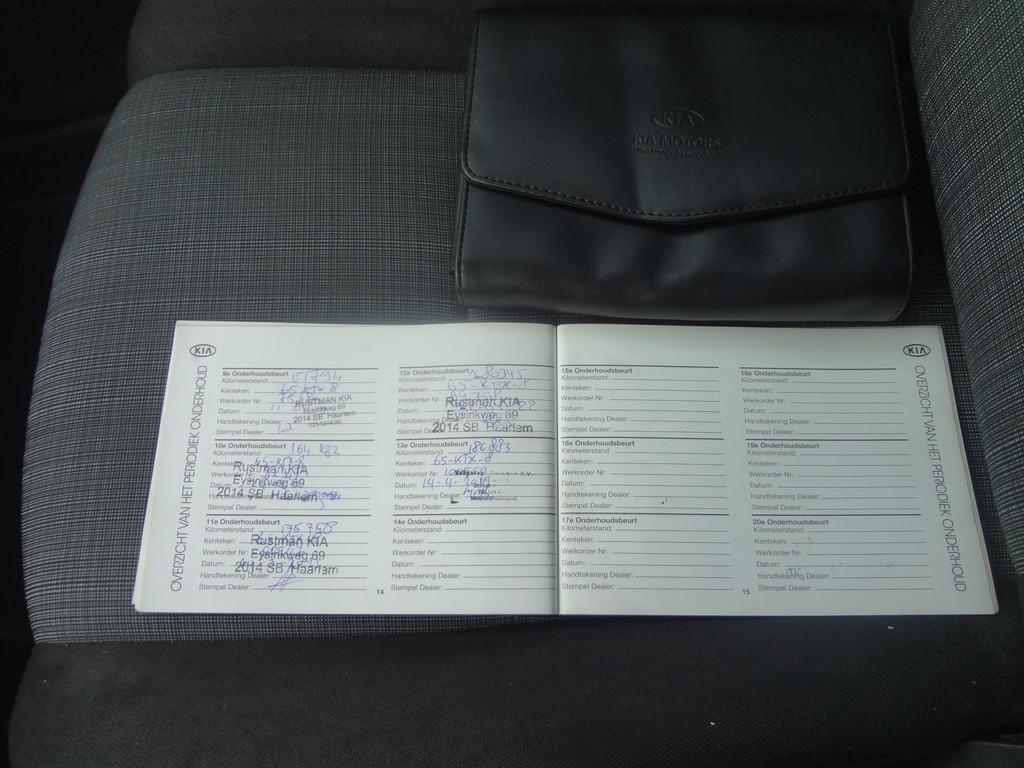 KIA
KIA MOTORS
The Power to Surprise
KIA
OVERZICHT VAN HET PERIODIEK ONDERHOUD
9e Onderhoudsbeurt
Kilometerstand: 151794
Kenteken: 65-KTX-8
Werkorder Nr:
Datum:
Handtekening Dealer
Stempel Dealer:
RUSTMAN KIA
Eysinkweg 69
2014 SB Haarlem
10e Onderhoudsbeurt
Kilometerstand: 164 282
Kenteken: 65-KTX-8
Werkorder Nr:
Datum:
Handtekening Dealer
Stempel Dealer:
Rustman KIA
Eysinkweg 69
2014 SB Haarlem
11e Onderhoudsbeurt
Kilometerstand:
Kenteken:
Werkorder Nr:
Datum:
Handtekening Dealer:
Stempel Dealer:
Rustman KIA
Eysinkweg 69
2014 SB Haarlem
14
12e Onderhoudsbeurt
Kilometerstand: 180345
Kenteken: 65-KTX-8
Werkorder Nr:
Datum:
Handtekening
Stempel
Rustman KIA
Eysinkweg 69
2014 SB Haarlem
13e Onderhoudsbeurt
Kilometerstand: 186883
Kenteken: 65-KTX-8
Werkorder Nr:
Datum: 14-4-
Handtekening Dealer
Stempel Dealer:
14e Onderhoudsbeurt
Kilometerstand:
Kenteken:
Werkorder Nr:
Datum:
Handtekening Dealer:
Stempel Dealer:
15e Onderhoudsbeurt
Kilometerstand:
Kenteken:
Werkorder Nr:
Datum:
Handtekening Dealer:
Stempel Dealer:
16e Onderhoudsbeurt
Kilometerstand:
Kenteken:
Werkorder Nr:
Datum:
Handtekening Dealer:
Stempel Dealer:
17e Onderhoudsbeurt
Kilometerstand:
Kenteken:
Werkorder Nr:
Datum:
Handtekening Dealer:
Stempel Dealer:
15
18e Onderhoudsbeurt
Kilometerstand:
Kenteken:
Werkorder Nr:
Datum:
Handtekening Dealer:
Stempel Dealer:
19e Onderhoudsbeurt
Kilometerstand:
Kenteken:
Werkorder Nr:
Datum:
Handtekening Dealer:
Stempel Dealer:
20e Onderhoudsbeurt
Kilometerstand:
Kenteken:
Werkorder Nr:
Datum:
Handtekening Dealer:
Stempel Dealer:
KIA
OVERZICHT VAN HET PERIODIEK ONDERHOUD